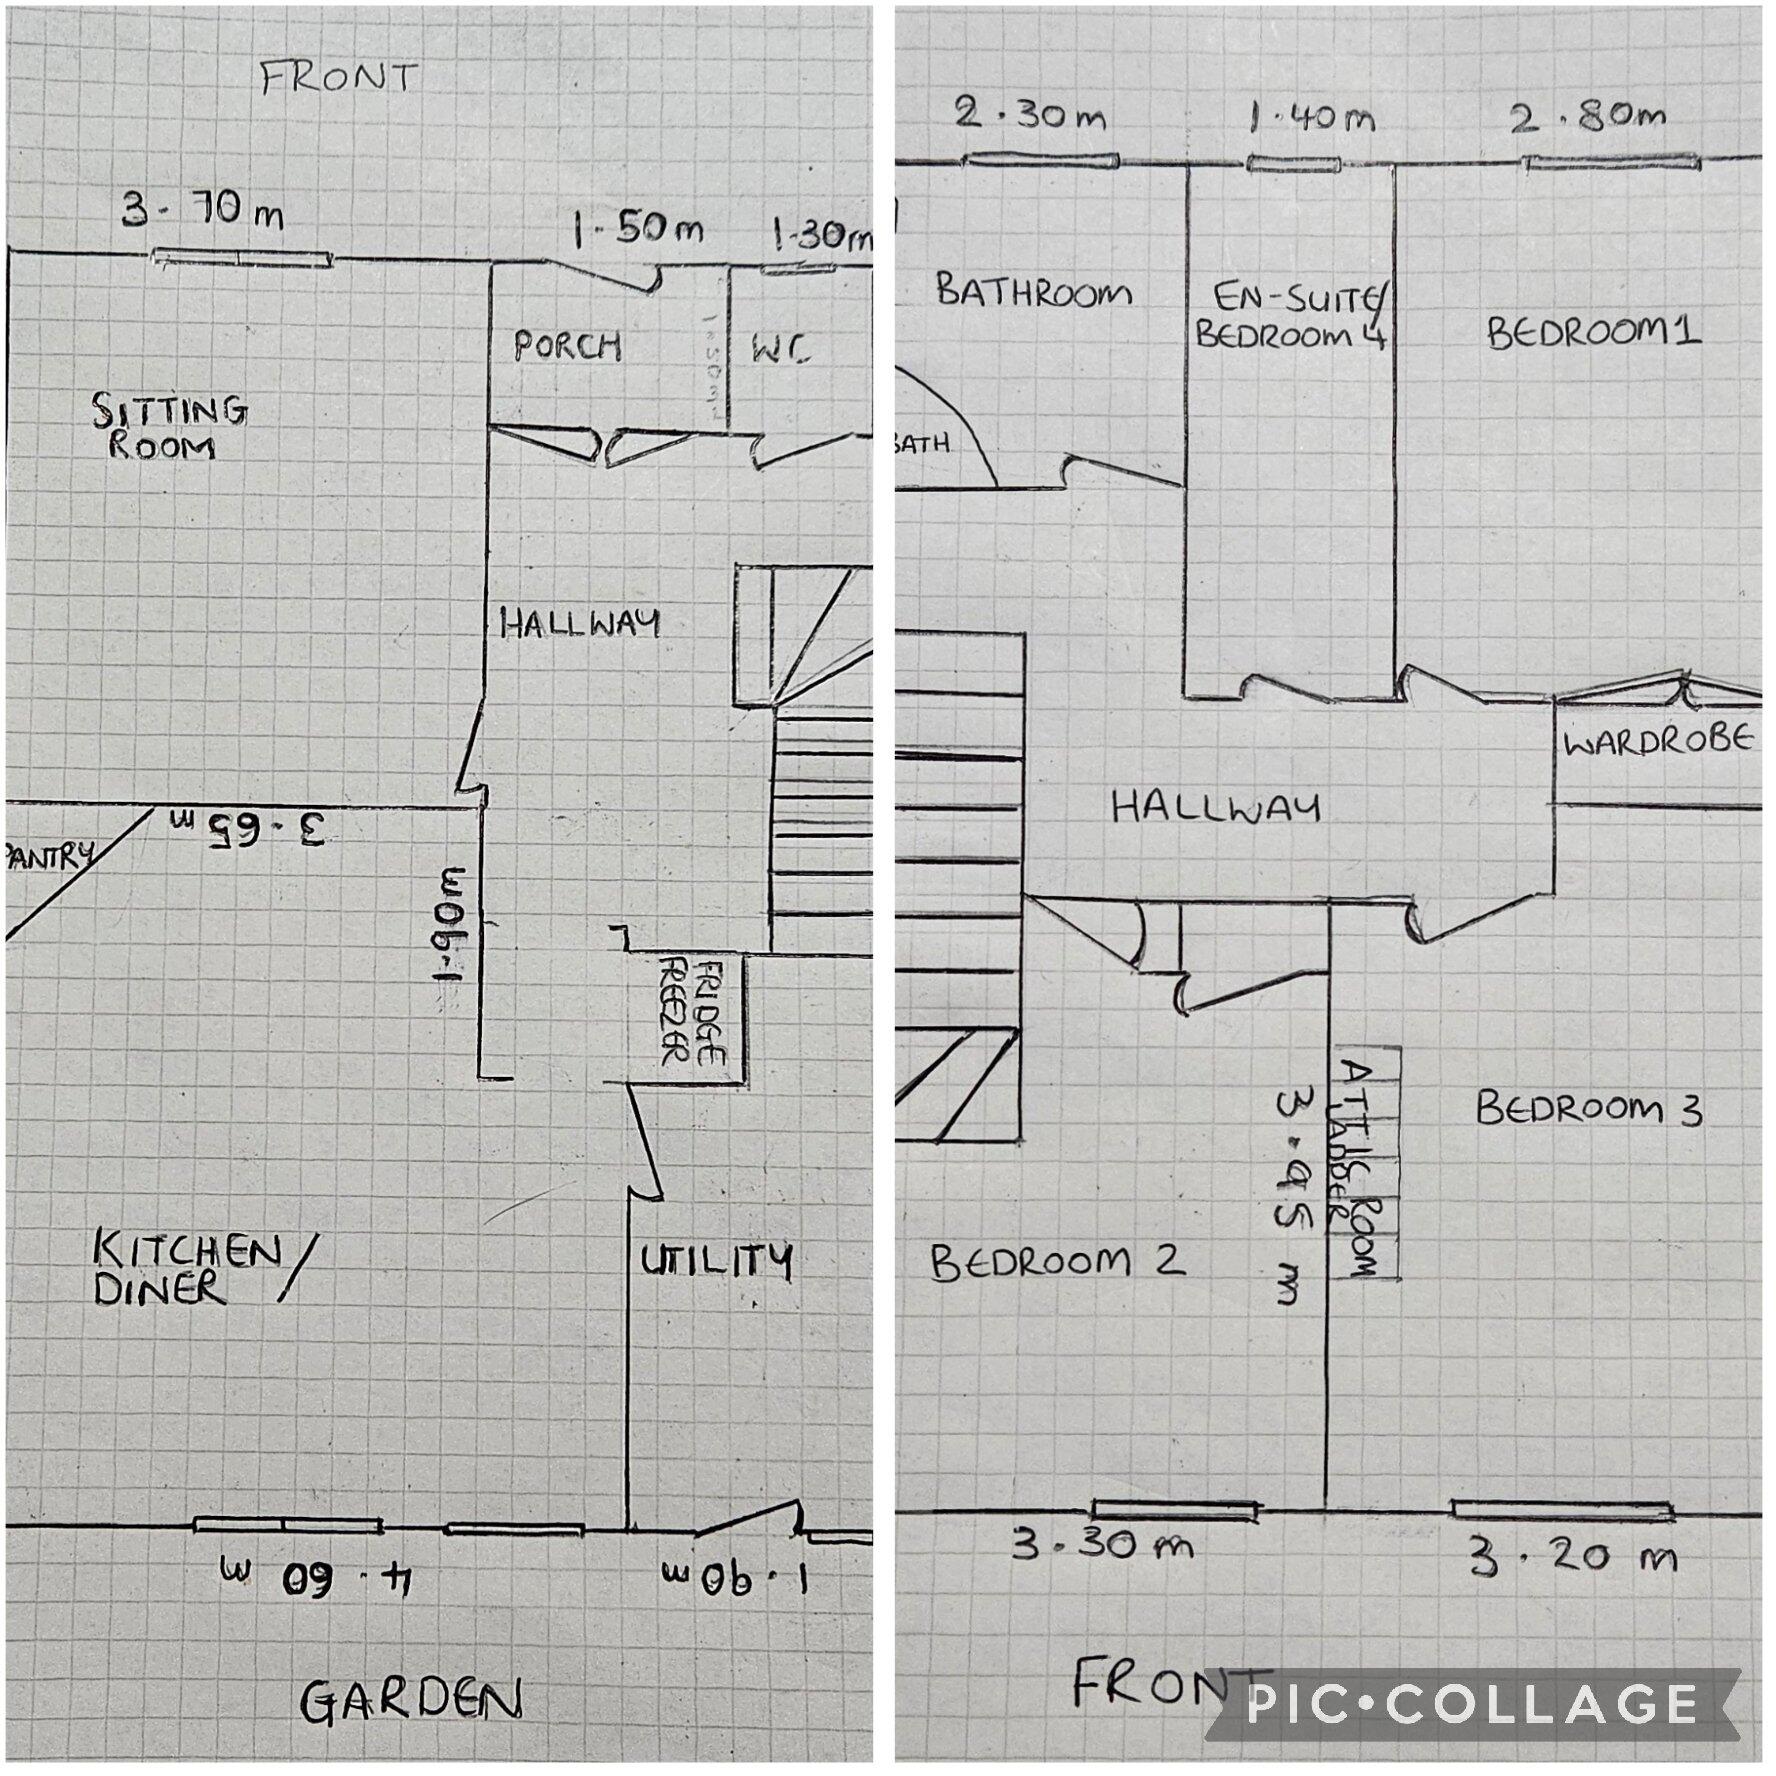 FRONT
3.70m
1.50m
1.30m
PORCH
WC
1.50m
SITTING
ROOM
HALLWAY
3.65m
PANTRY
1.90m
FRIDGE
FREEZER
KITCHEN/
DINER
UTILITY
4.60m
1.90m
GARDEN
2.30m
1.40m
2.80m
BATHROOM
EN-SUITE/
BEDROOM 4
BEDROOM1
BATH
WARDROBE
HALLWAY
ATTIC ROOM
LADDER
3.95m
BEDROOM 3
BEDROOM 2
3.30m
3.20m
FRONT
PIC•COLLAGE